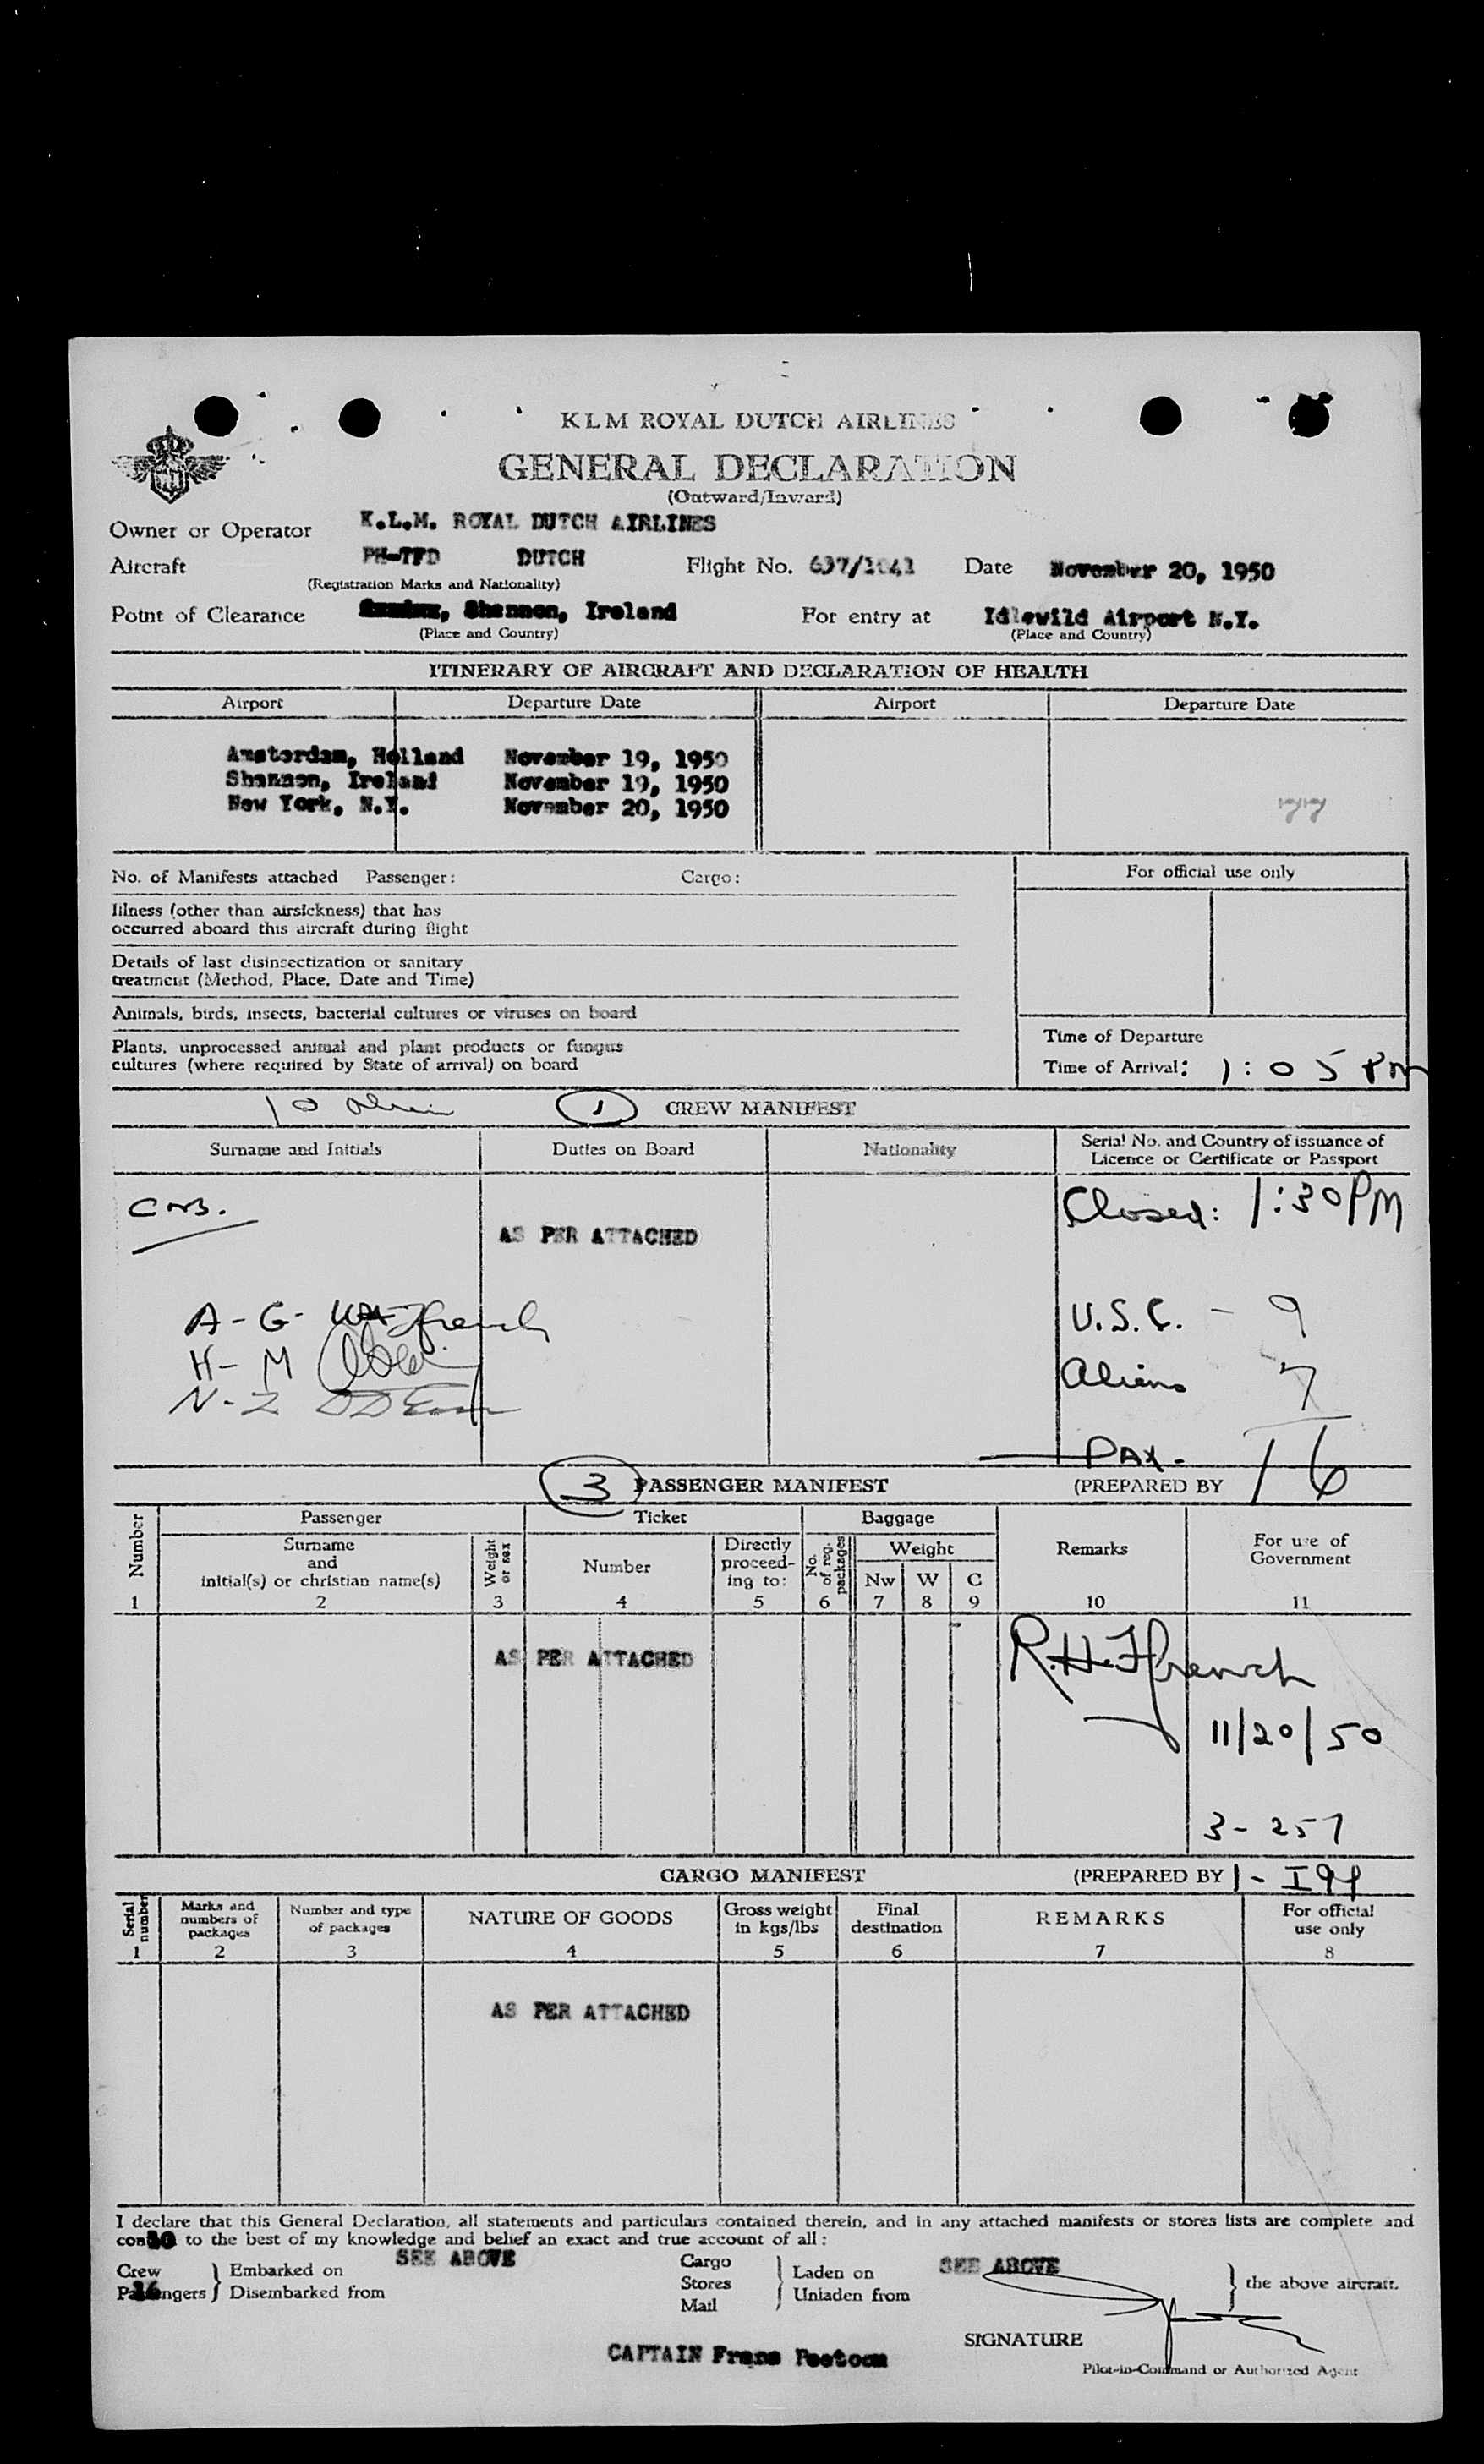 KLM ROYAL DUTCH AIRLINES
GENERAL DECLARATION
(Outward/Inward)
Owner or Operator K.L.M. ROYAL DUTCH AIRLINES
Aircraft PH-TFD DUTCH Flight No. 637/1041 Date November 20, 1950
(Registration Marks and Nationality)
Point of Clearance Shannon, Ireland For entry at Idlewild Airport N.Y.
(Place and Country) (Place and Country)
ITINERARY OF AIRCRAFT AND DECLARATION OF HEALTH
Airport Departure Date Airport Departure Date
Amsterdam, Holland November 19, 1950
Shannon, Ireland November 19, 1950
New York, N.Y. November 20, 1950
No. of Manifests attached Passenger: Cargo: For official use only
Illness (other than airsickness) that has
occurred aboard this aircraft during flight
Details of last disinsectization or sanitary
treatment (Method, Place, Date and Time)
Animals, birds, insects, bacterial cultures or viruses on board
Plants, unprocessed animal and plant products or fungus
cultures (where required by State of arrival) on board
Time of Departure
Time of Arrival: 1:05 PM
10 1 CREW MANIFEST
Surname and Initials Duties on Board Nationality Serial No. and Country of issuance of
Licence or Certificate or Passport
Closed: 1:30 PM
AS PER ATTACHED
A-G- Ffrench U.S.C. - 9
H- M Aliens 7
N-Z
PAX- 16
3 PASSENGER MANIFEST (PREPARED BY
Number Passenger Ticket Baggage Remarks For use of
Government
Surname
and
initial(s) or christian name(s) Weight
or sex Number Directly
proceed-
ing to: No.
of reg.
packages Weight
Nw W C
1 2 3 4 5 6 7 8 9 10 11
AS PER ATTACHED R.H. Ffrench
11/20/50
3- 257
CARGO MANIFEST (PREPARED BY 1-
Serial
number Marks and
numbers of
packages Number and type
of packages NATURE OF GOODS Gross weight
in kgs/lbs Final
destination REMARKS For official
use only
1 2 3 4 5 6 7 8
AS PER ATTACHED
I declare that this General Declaration, all statements and particulars contained therein, and in any attached manifests or stores lists are complete and
to the best of my knowledge and belief an exact and true account of all:
Crew Embarked on SEE ABOVE Cargo Laden on SEE ABOVE
16 Passengers Disembarked from Stores Unladen from the above aircraft.
Mail
CAPTAIN Frans SIGNATURE
Pilot-in-Command or Authorized Agent